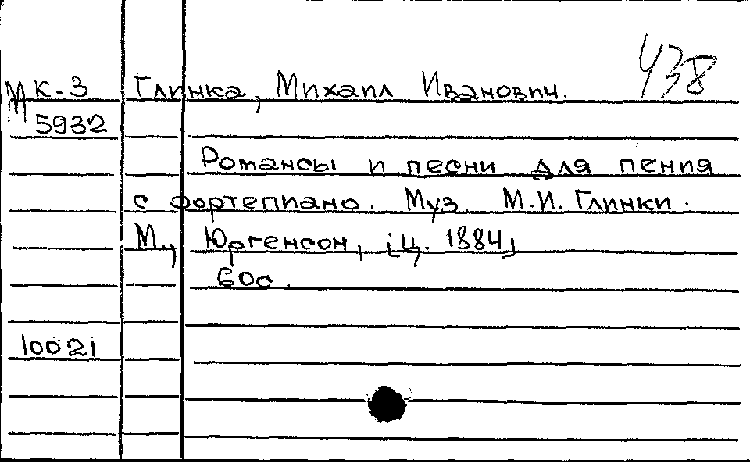 438
МК-3 Глинка, Михаил Иванович.
5932
Романсы и песни для пения
с фортепиано. Муз. М.И. Глинки.
М., Юргенсон, [ц. 1884]
60с.
10021